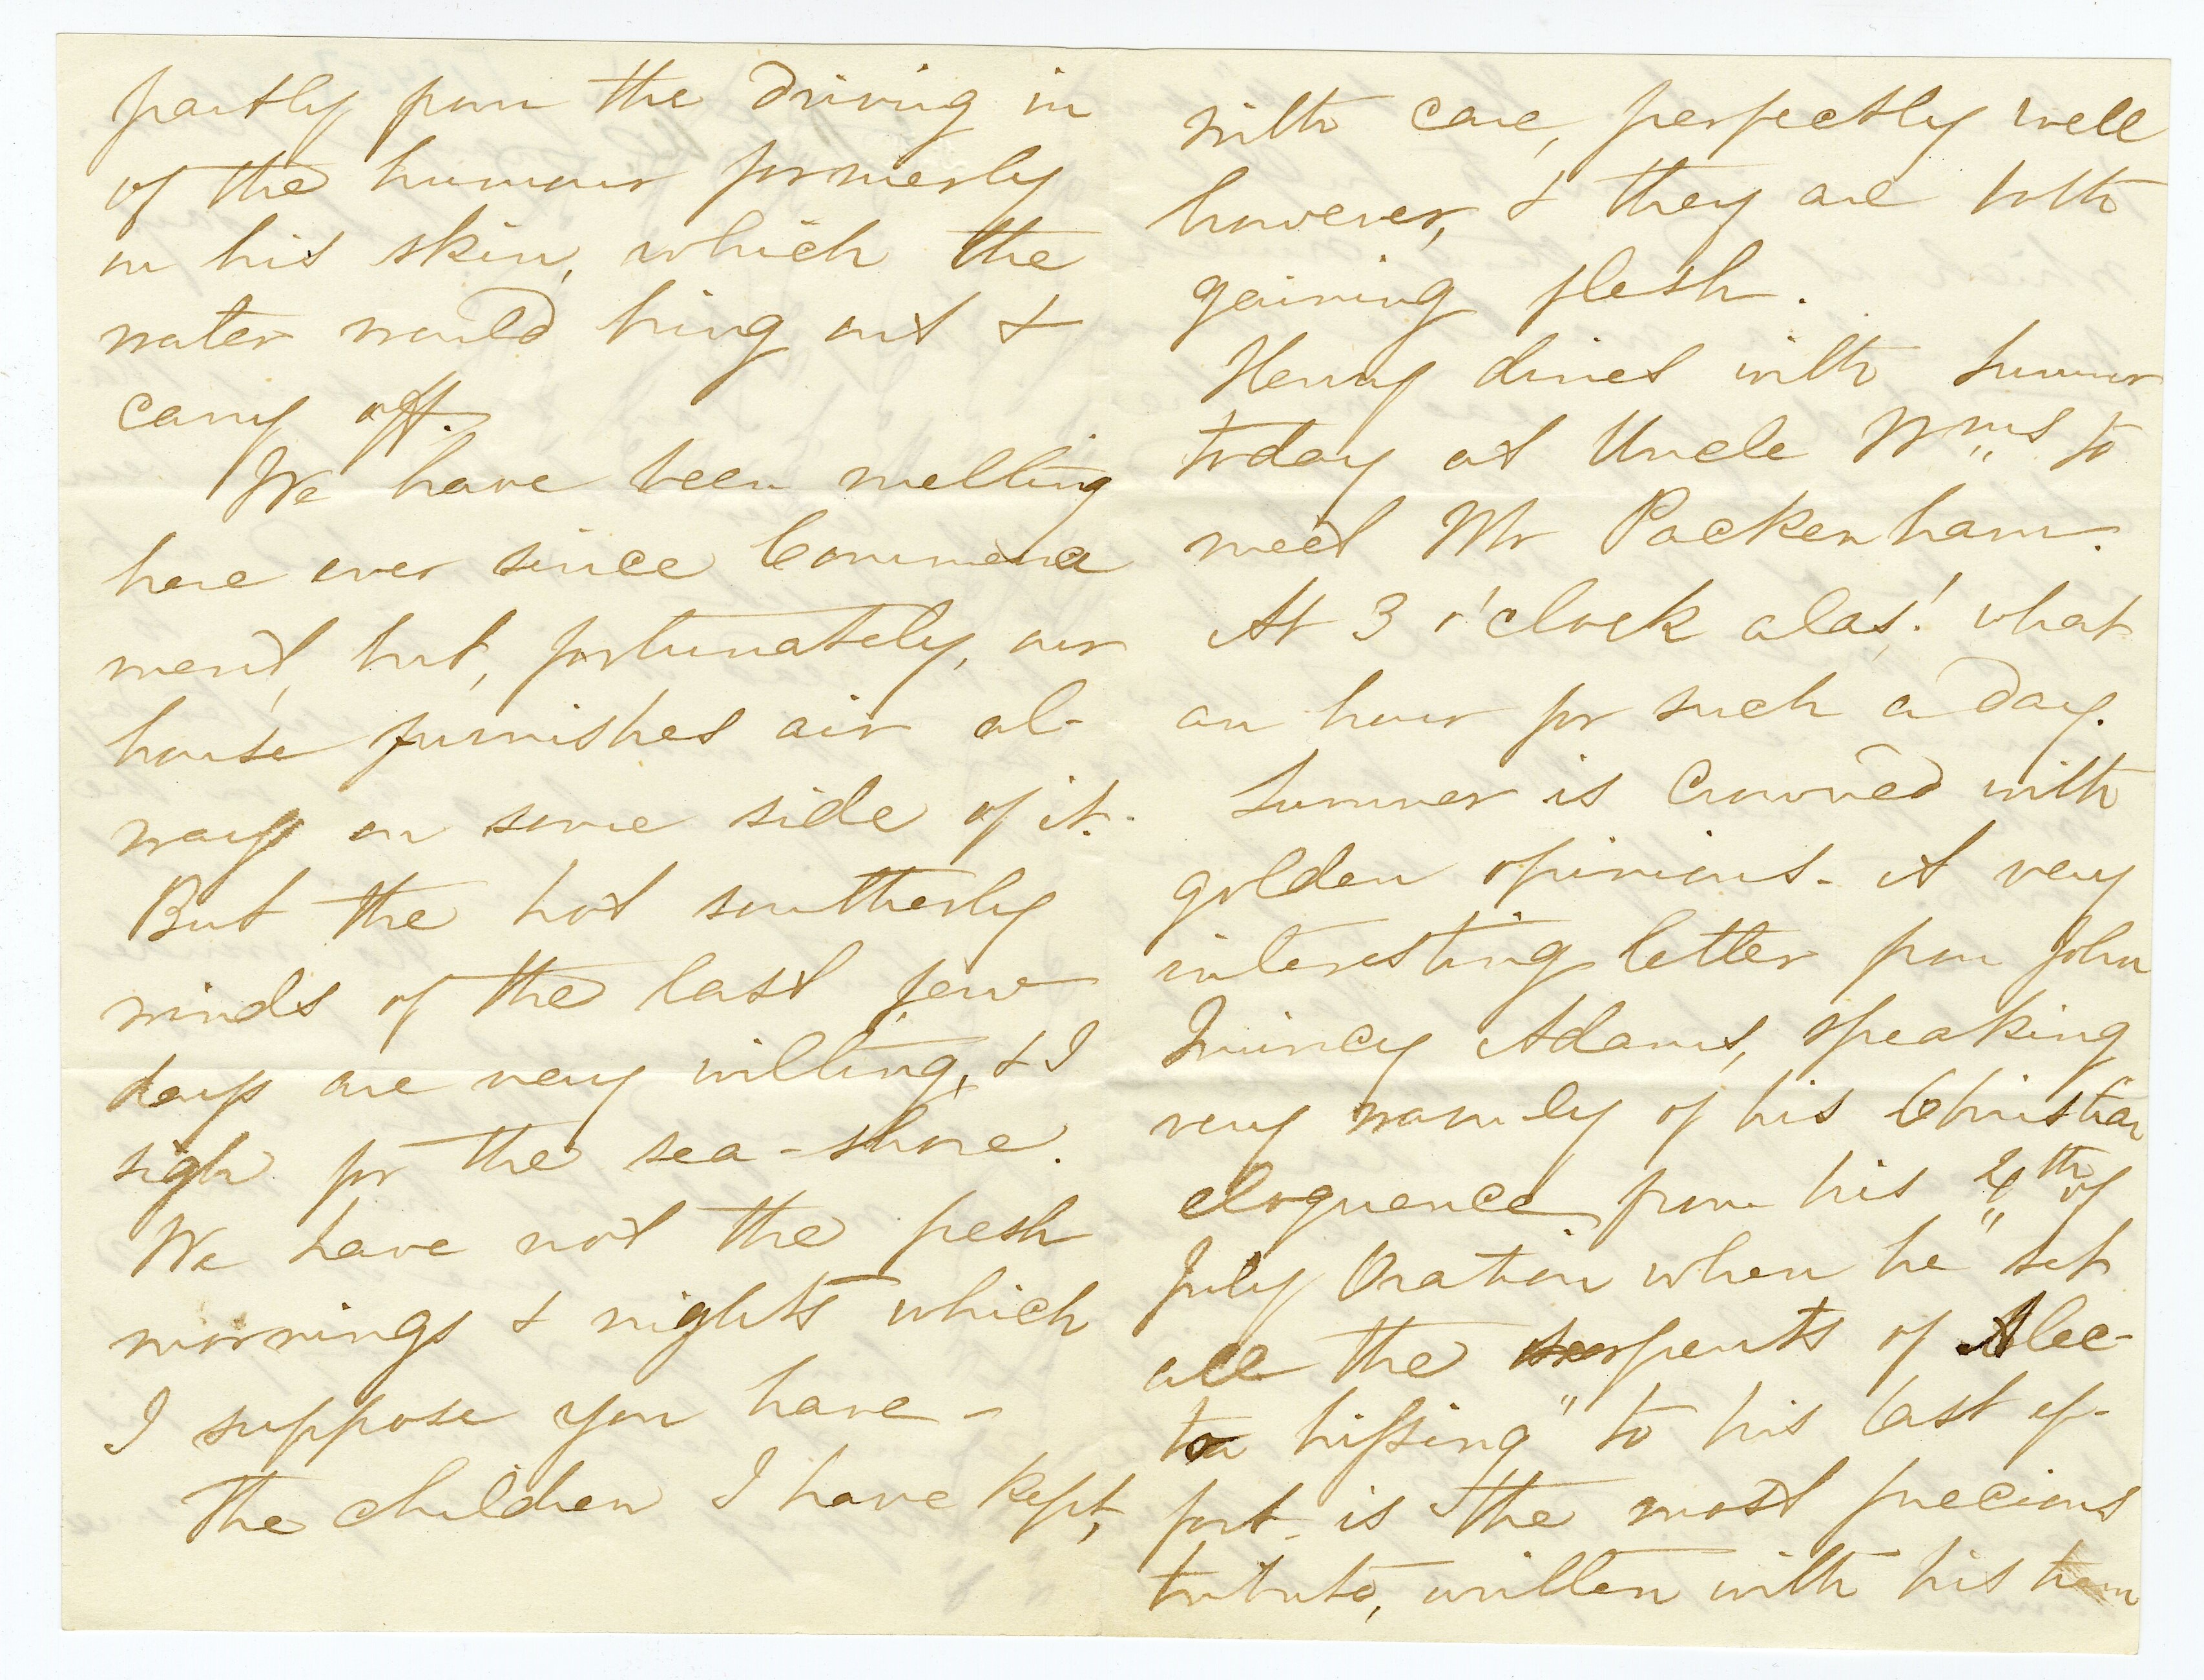 partly from the driving in
of the humour formerly
in his skin, which the
water would bring out &
carry off.
We have been melting
here ever since Commence
ment, but, fortunately, our
house furnishes air al-
ways on some side of it.
But the hot southerly
winds of the last few
days are very wilting, & I
sigh for the sea-shore.
We have not the fresh
mornings & nights which
I suppose you have –
The children I have kept,
with care, perfectly well
however, & they are both
gaining flesh.
Henry dines with Sumner
today at Uncle Wms to
meet Mr Packenham.
At 3 o'clock alas! what
an hour for such a day.
Sumner is crowned with
golden opinions. A very
interesting letter from John
Quincy Adams, speaking
very warmly of his Christian
eloquence from his 4th of
July Oration when he "set
all the serpents of Alec-
to hissing" to his last ef-
fort is the most precious
tribute, written with his